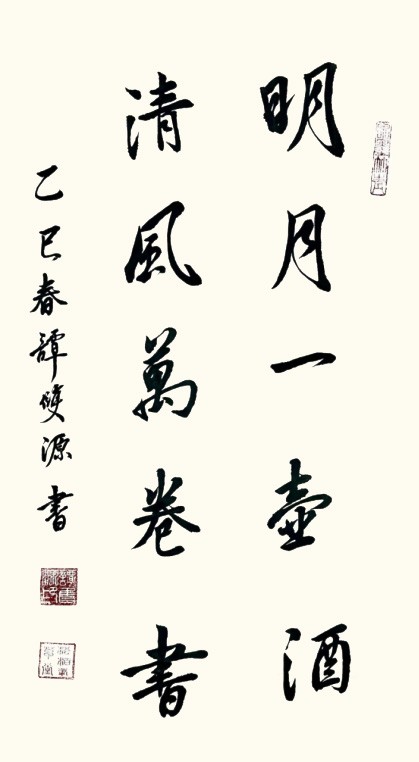 明月一壺酒
清風萬卷書
乙巳春譚雙源書